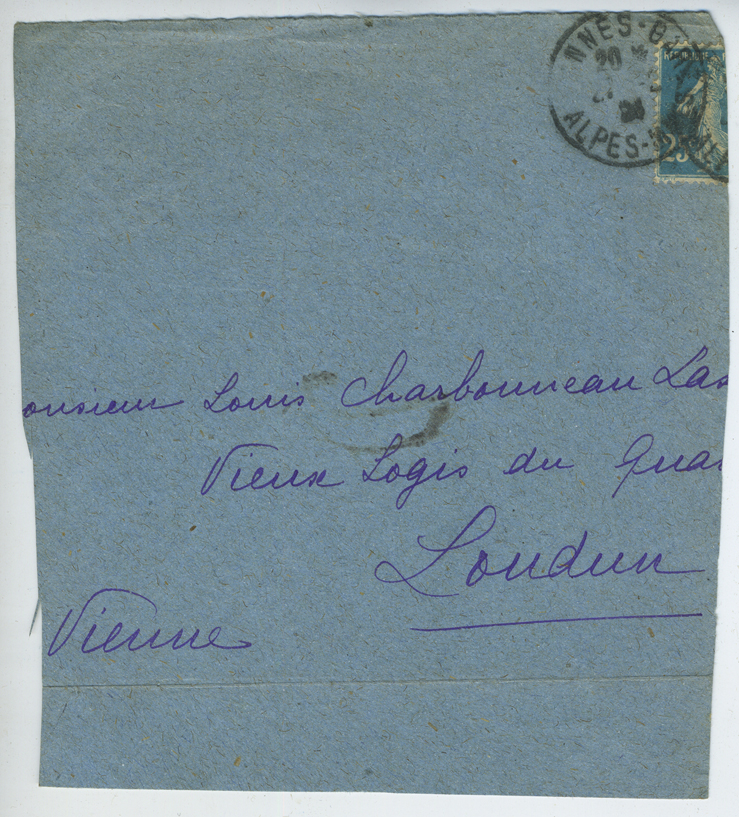 NNES-
20
ALPES-M
25
onsieur Louis Charbonneau Las
Vieux Logis du Quai
Loudun
Vienne